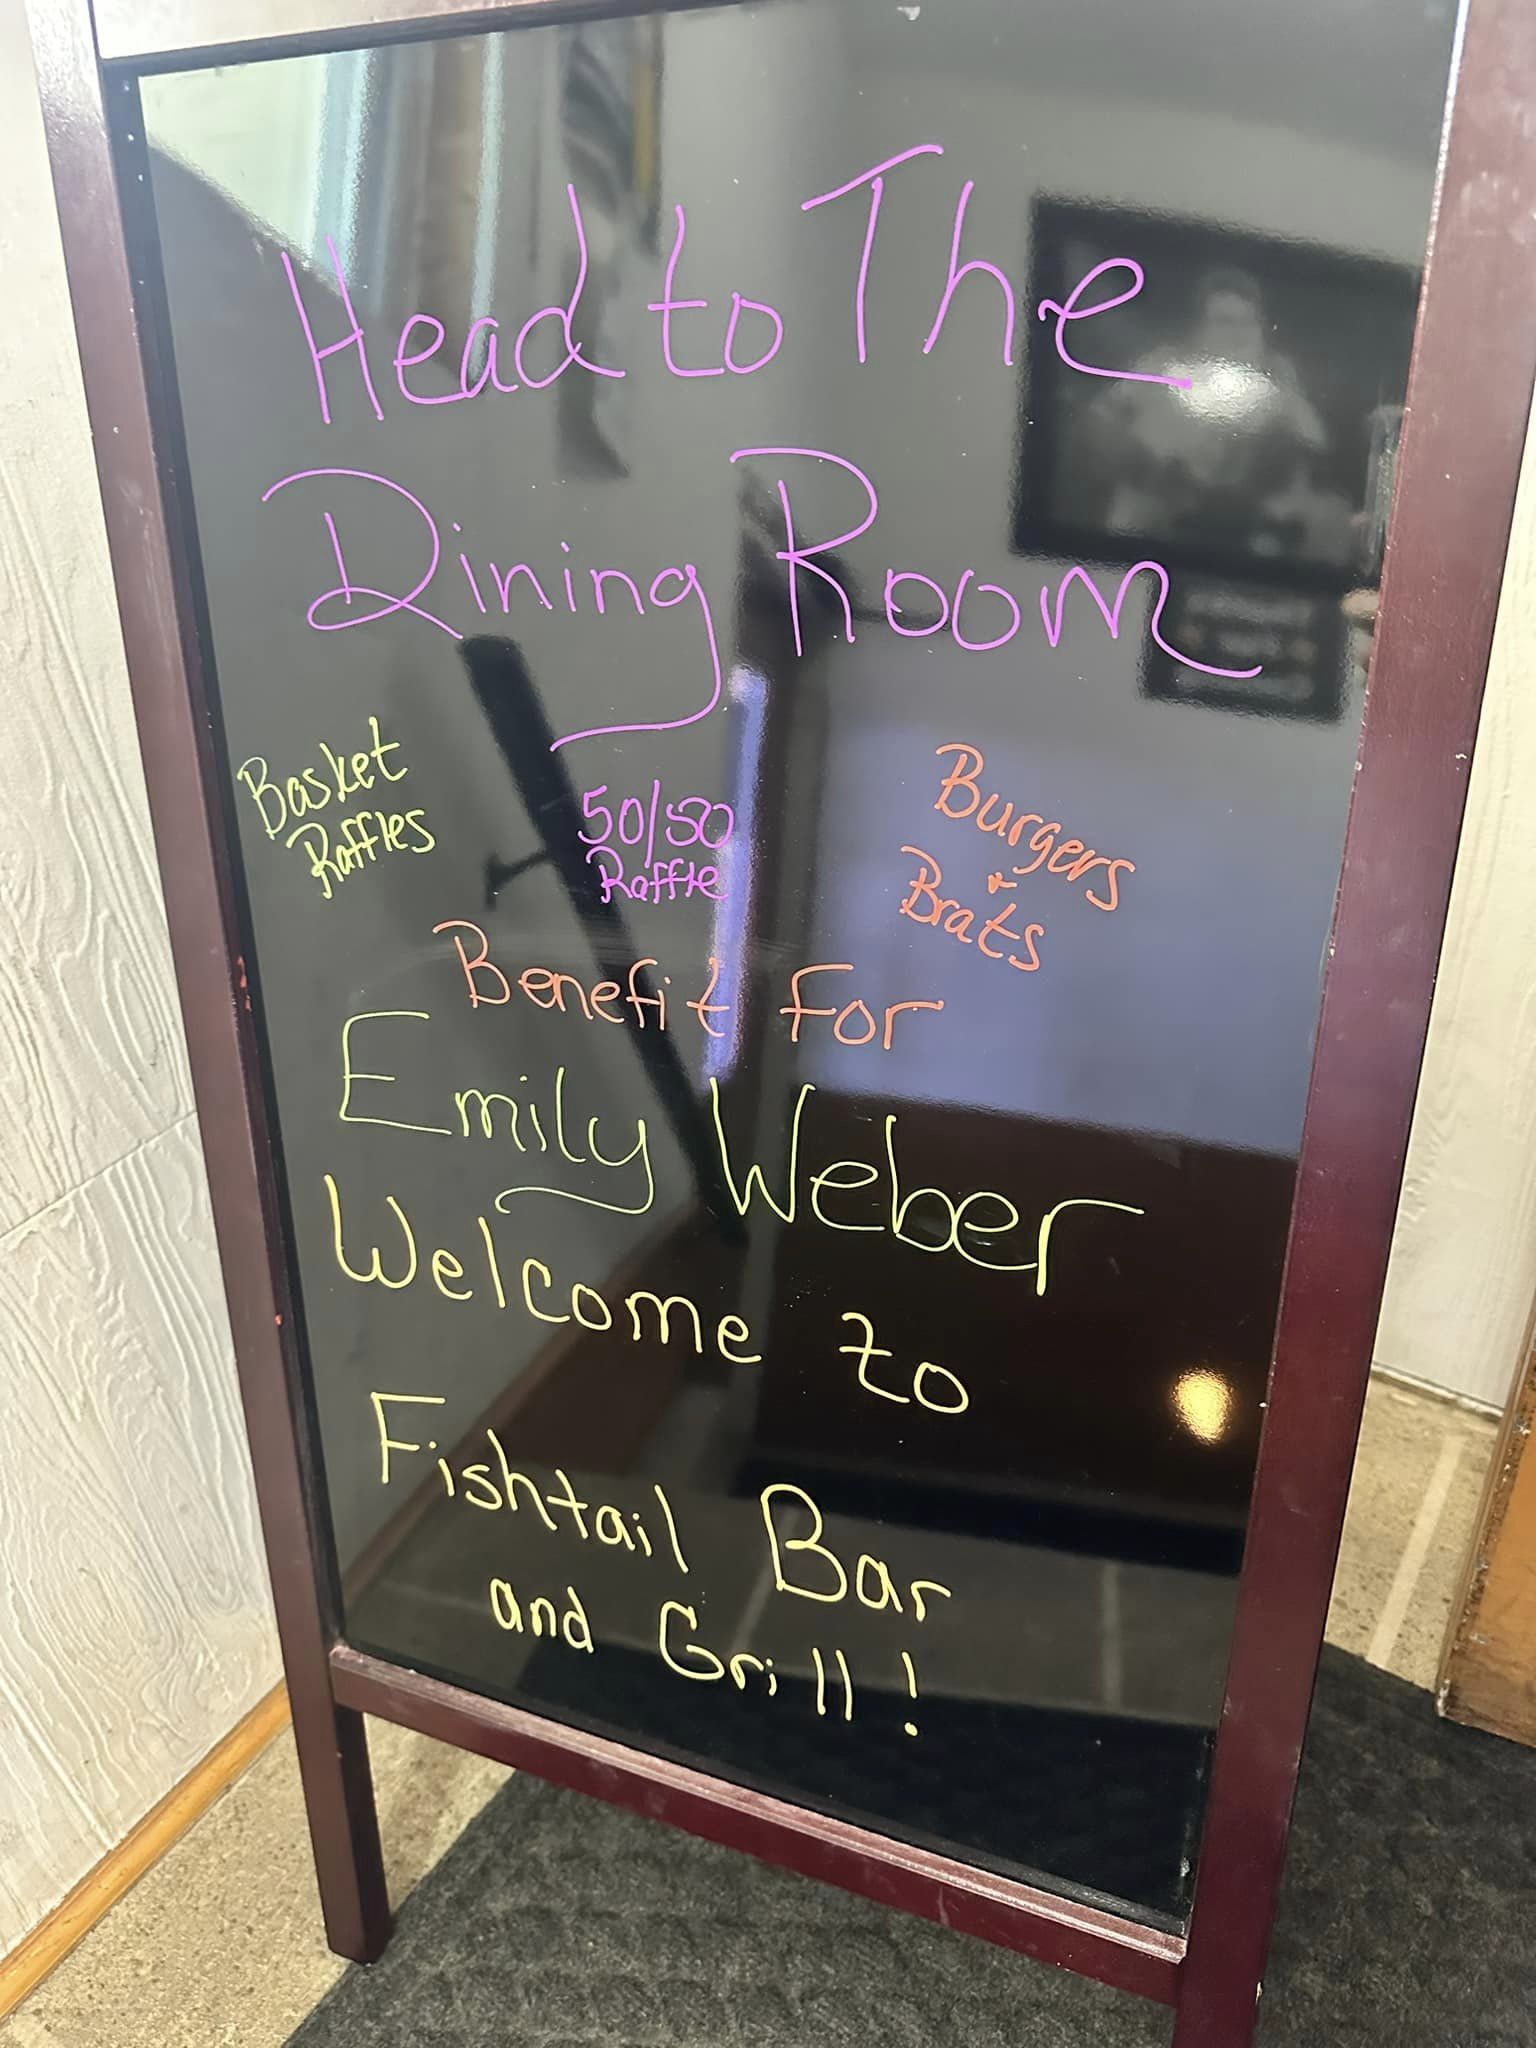 Head to The
Dining Room
Basket
Raffles
50/50
Raffle
Burgers
&
Brats
Benefit For
Emily Weber
Welcome to
Fishtail Bar
and Grill!